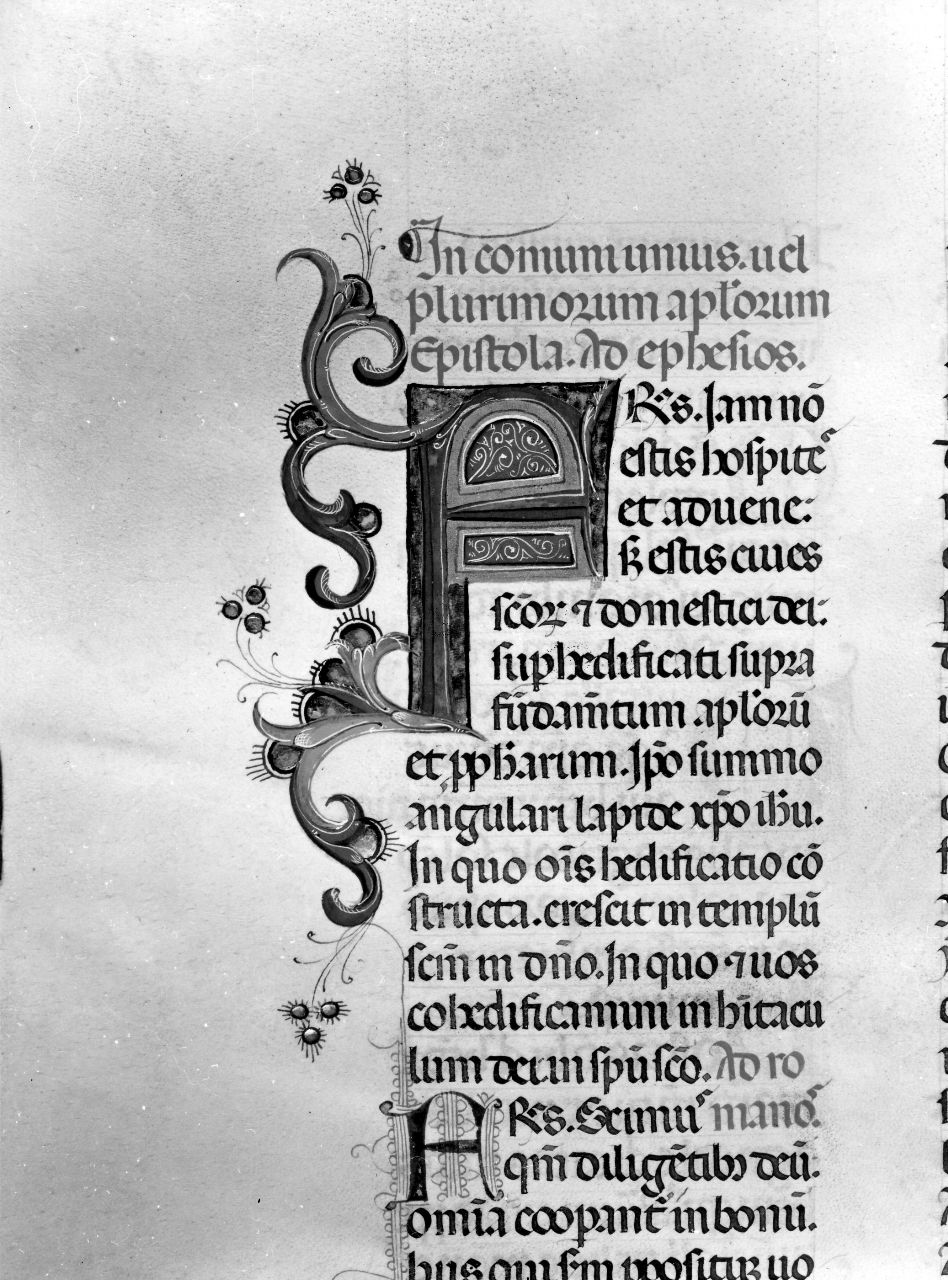 In comuni unius. uel
plurimorum apl'orum
Epistola. Ad ephesios.
FR̄s. Iam nō
estis hospiteˢ
et aduene:
sꝫ estis ciues
scōꝝ ⁊ domestici dei:
suꝑhedificati supra
fūdam̄tum apl'oꝝū
et ꝓph'arum. Ip̄o summo
angulari lapide xp̄o ih̄u.
In quo oīs hedificatio cō
structa. crescit in templū
scm̄ in dn̄o. In quo ⁊ uos
cohedificamini in h̄itacu
lum dei in spū scō. Ad ro
FR̄s. Scimuˢ manoˢ.
qm̄ diligētibꝰ deū:
omīa coopanť in bonū.
hus qui scm̄ ꝓpositū uo